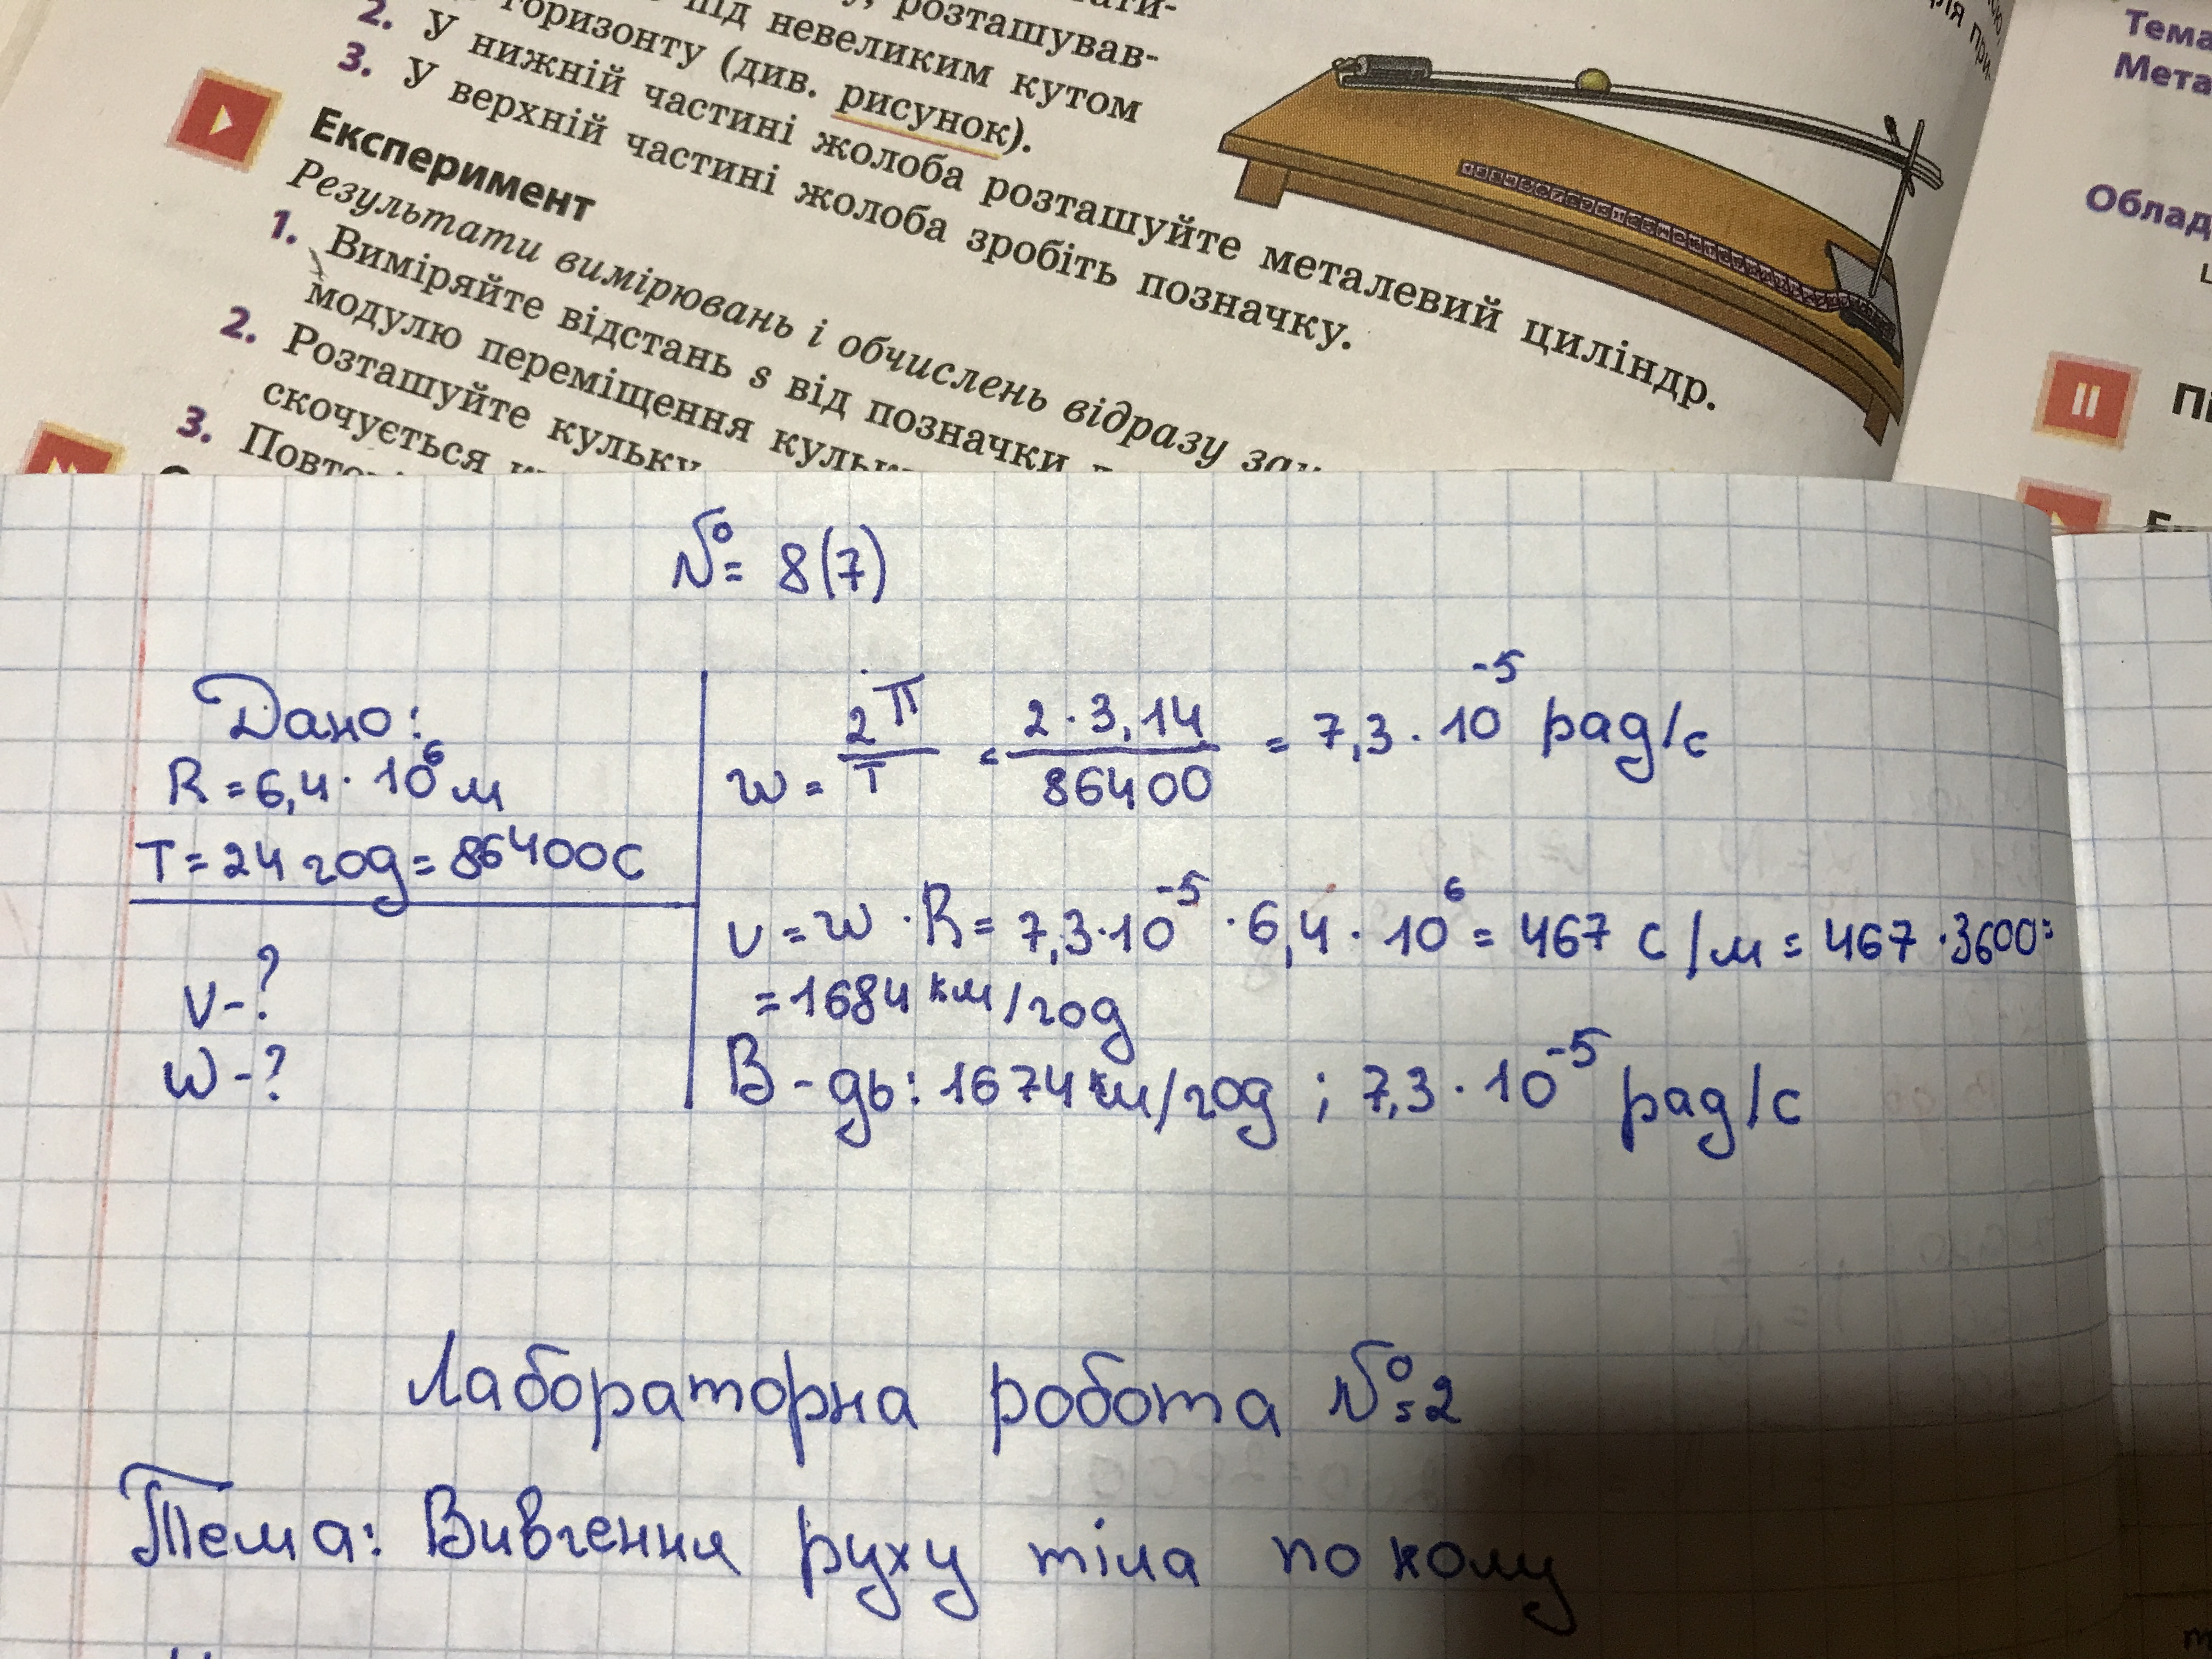 розташував-
під невеликим кутом
горизонту (див. рисунок).
2. У нижній частині жолоба розташуйте металевий циліндр.
3. У верхній частині жолоба зробіть позначку.
Експеримент
Результати вимірювань і обчислень відразу
1. Виміряйте відстань s від позначки
модулю переміщення
2. Розташуйте кульку
скочується
3.
Тема
Мета
Облад
№ 8(7)
Дано:
R = 6,4 · 10⁶ м
T = 24 год = 86400 с
v - ?
w - ?
w = 2π/T = 2 · 3,14/86400 = 7,3 · 10⁻⁵ рад/с
v = w · R = 7,3 · 10⁻⁵ · 6,4 · 10⁶ = 467 с/м = 467 · 3600 =
= 1684 км/год
В-дь: 1674 км/год ; 7,3 · 10⁻⁵ рад/с
Лабораторна робота №2
Тема: Вивчення руху тіла по колу